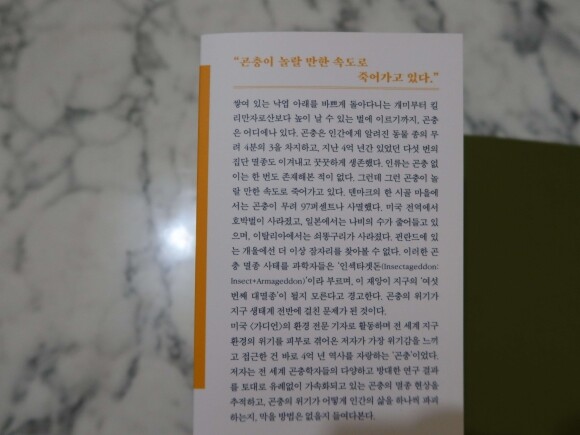 “곤충이 놀랄 만한 속도로
죽어가고 있다.”
쌓여 있는 낙엽 아래를 바쁘게 돌아다니는 개미부터 킬
리만자로산보다 높이 날 수 있는 벌에 이르기까지, 곤충
은 어디에나 있다. 곤충은 인간에게 알려진 동물 종의 무
려 4분의 3을 차지하고, 지난 4억 년간 있었던 다섯 번의
집단 멸종도 이겨내고 꿋꿋하게 생존했다. 인류는 곤충 없
이는 한 번도 존재해본 적이 없다. 그런데 그런 곤충이 놀
랄 만한 속도로 죽어가고 있다. 덴마크의 한 시골 마을에
서는 곤충이 무려 97퍼센트나 사멸했다. 미국 전역에서
호박벌이 사라졌고, 일본에서는 나비의 수가 줄어들고 있
으며, 이탈리아에서는 쇠똥구리가 사라졌다. 핀란드에 있
는 개울에선 더 이상 잠자리를 찾아볼 수 없다. 이러한 곤
충 멸종 사태를 과학자들은 ‘인섹타겟돈(Insectageddon:
Insect+Armageddon)’이라 부르며, 이 재앙이 지구의 ‘여섯
번째 대멸종’이 될지 모른다고 경고한다. 곤충의 위기가
지구 생태계 전반에 걸친 문제가 된 것이다.
미국 〈가디언〉의 환경 전문 기자로 활동하며 전 세계 지구
환경의 위기를 피부로 겪어온 저자가 가장 위기감을 느끼
고 접근한 건 바로 4억 년 역사를 자랑하는 ‘곤충’이었다.
저자는 전 세계 곤충학자들의 다양하고 방대한 연구 결과
를 토대로 유례없이 가속화되고 있는 곤충의 멸종 현상을
추적하고, 곤충의 위기가 어떻게 인간의 삶을 하나씩 파괴
하는지, 막을 방법은 없을지 들여다본다.